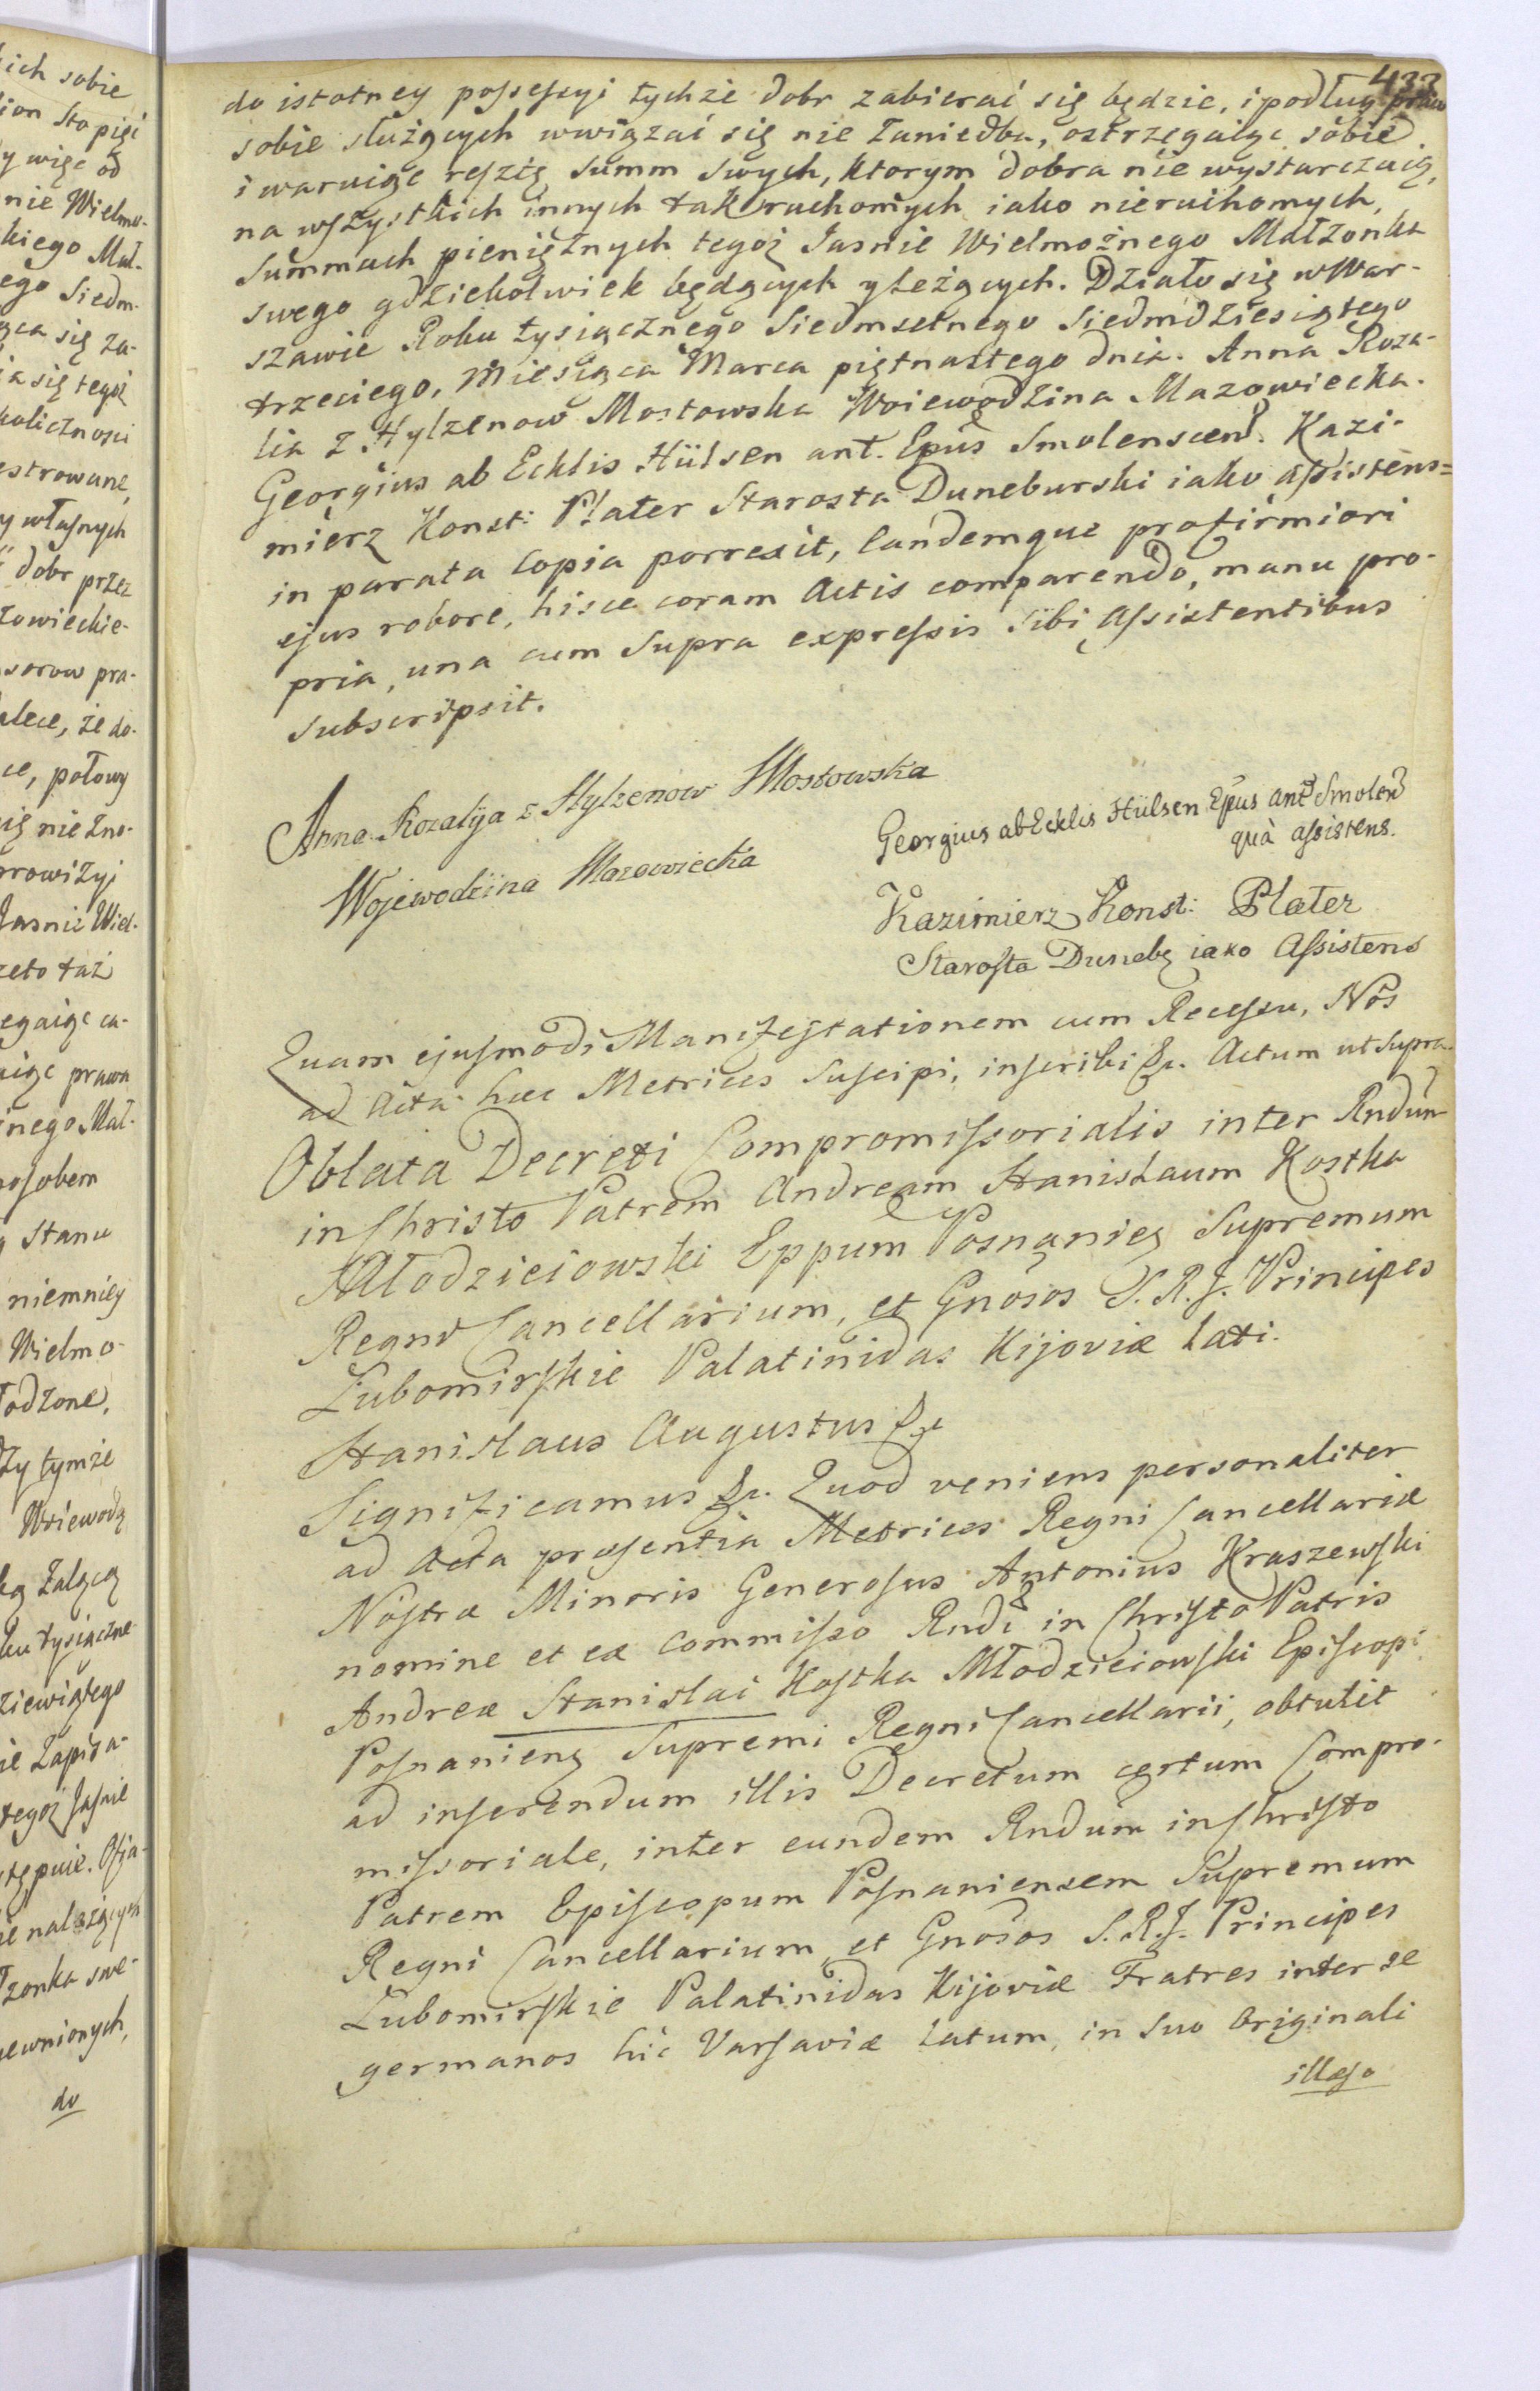 433
do istotney possessyi tychże dobr zabierać się będzie, i podług praw
sobie służących wwiązać się nie Zaniedba, ostrzegaiąc sobie
i waruiąc resztę Summ Swych, Ktorym dobra nie wystarczaią,
na wszystkich innych tak ruchomych iako nieruchomych,
Summach pieniężnych tegoż Jasnie Wielmożnego Małżonka
swego gdziekolwiek będących y leżących. Działo się w War-
szawie Roku tysiącznego Siedmsetnego Siedmdziesiątego
trzeciego, Miesiąca Marca piętnastego dnia. Anna Roza-
lia z Hylzenow Mostowska Woiewodzina Mazowiecka.
Georgius ab Ecklis Hülsen ant. Epus Smolenscen. Kazi-
mierz Konst: Plater Starosta Duneburski iako assistens=
in parata Copia porrexit, Eandemque pro firmiori
ejus robore, hisce coram Actis comparendo, manu pro-
pria, una cum Supra expressis Sibi Assistentibus
subscripsit.
Anna Rozalija z Hylzenow Mostowska
Wojewodzina Mazowiecka
Georgius ab Ecklis Hülsen Epus ant Smolen
quà assistens.
Kazimierz Konst: Plater
Starosta Duneb iako Assistens
Quam ejusmodi Manifestationem cum Recessu, Nos
ad Acta haec Metrices Suscipi, inscribi &c. Actum ut Supra.
Oblata Decreti Compromissorialis inter Rndum
in Christo Patrem Andream Stanislaum Kostka
Młodzieiowski Eppum Posnanien Supremum
Regni Cancellarium, et Gnosos S.R.J. Principes
Lubomirskie Palatinidas Kijoviæ Lati.
Stanislaus Augustus &c
Significamus &c. Quod veniens personaliter
ad Acta præsentia Metrices Regni Cancellariæ
Nostræ Minoris Generosus Antonius Kraszewski
nomine et ex Commisso Rndi in Christo Patris
Andreæ Stanislai Kostka Młodzieiowski Episcopi
Posnanien Supremi Regni Cancellarii, obtulit
ad inserendum illis Decretum certum Compro-
missoriale, inter eundem Rndum in Christo
Patrem Episcopum Posnaniensem Supremum
Regni Cancellarium et Gnosos S.R.J. Principes
Lubomirskie Palatinidas Kijoviæ Fratres inter se
germanos hic Varsaviæ Latum, in Suo Originali
illæso